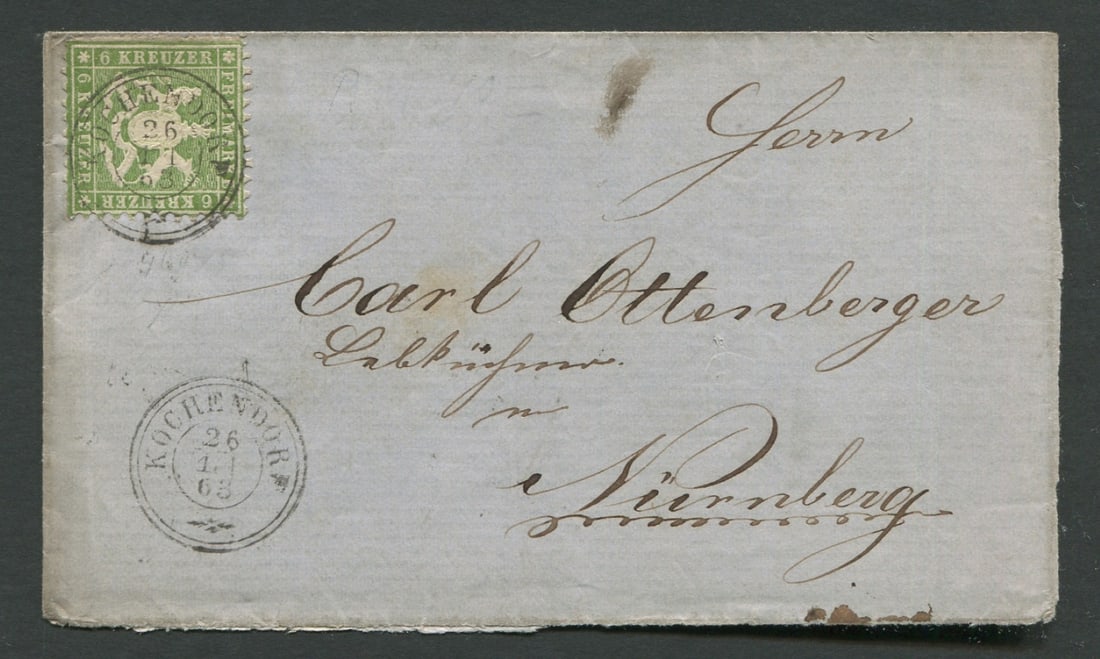 6 KREUZER
FREIMARKE
6 KREUZER
6 KREUZER
KOCHENDORF
26
11
63
Herrn
Carl Ottenberger
Lebküchner
in
Nürnberg
KOCHENDORF
26
11
63